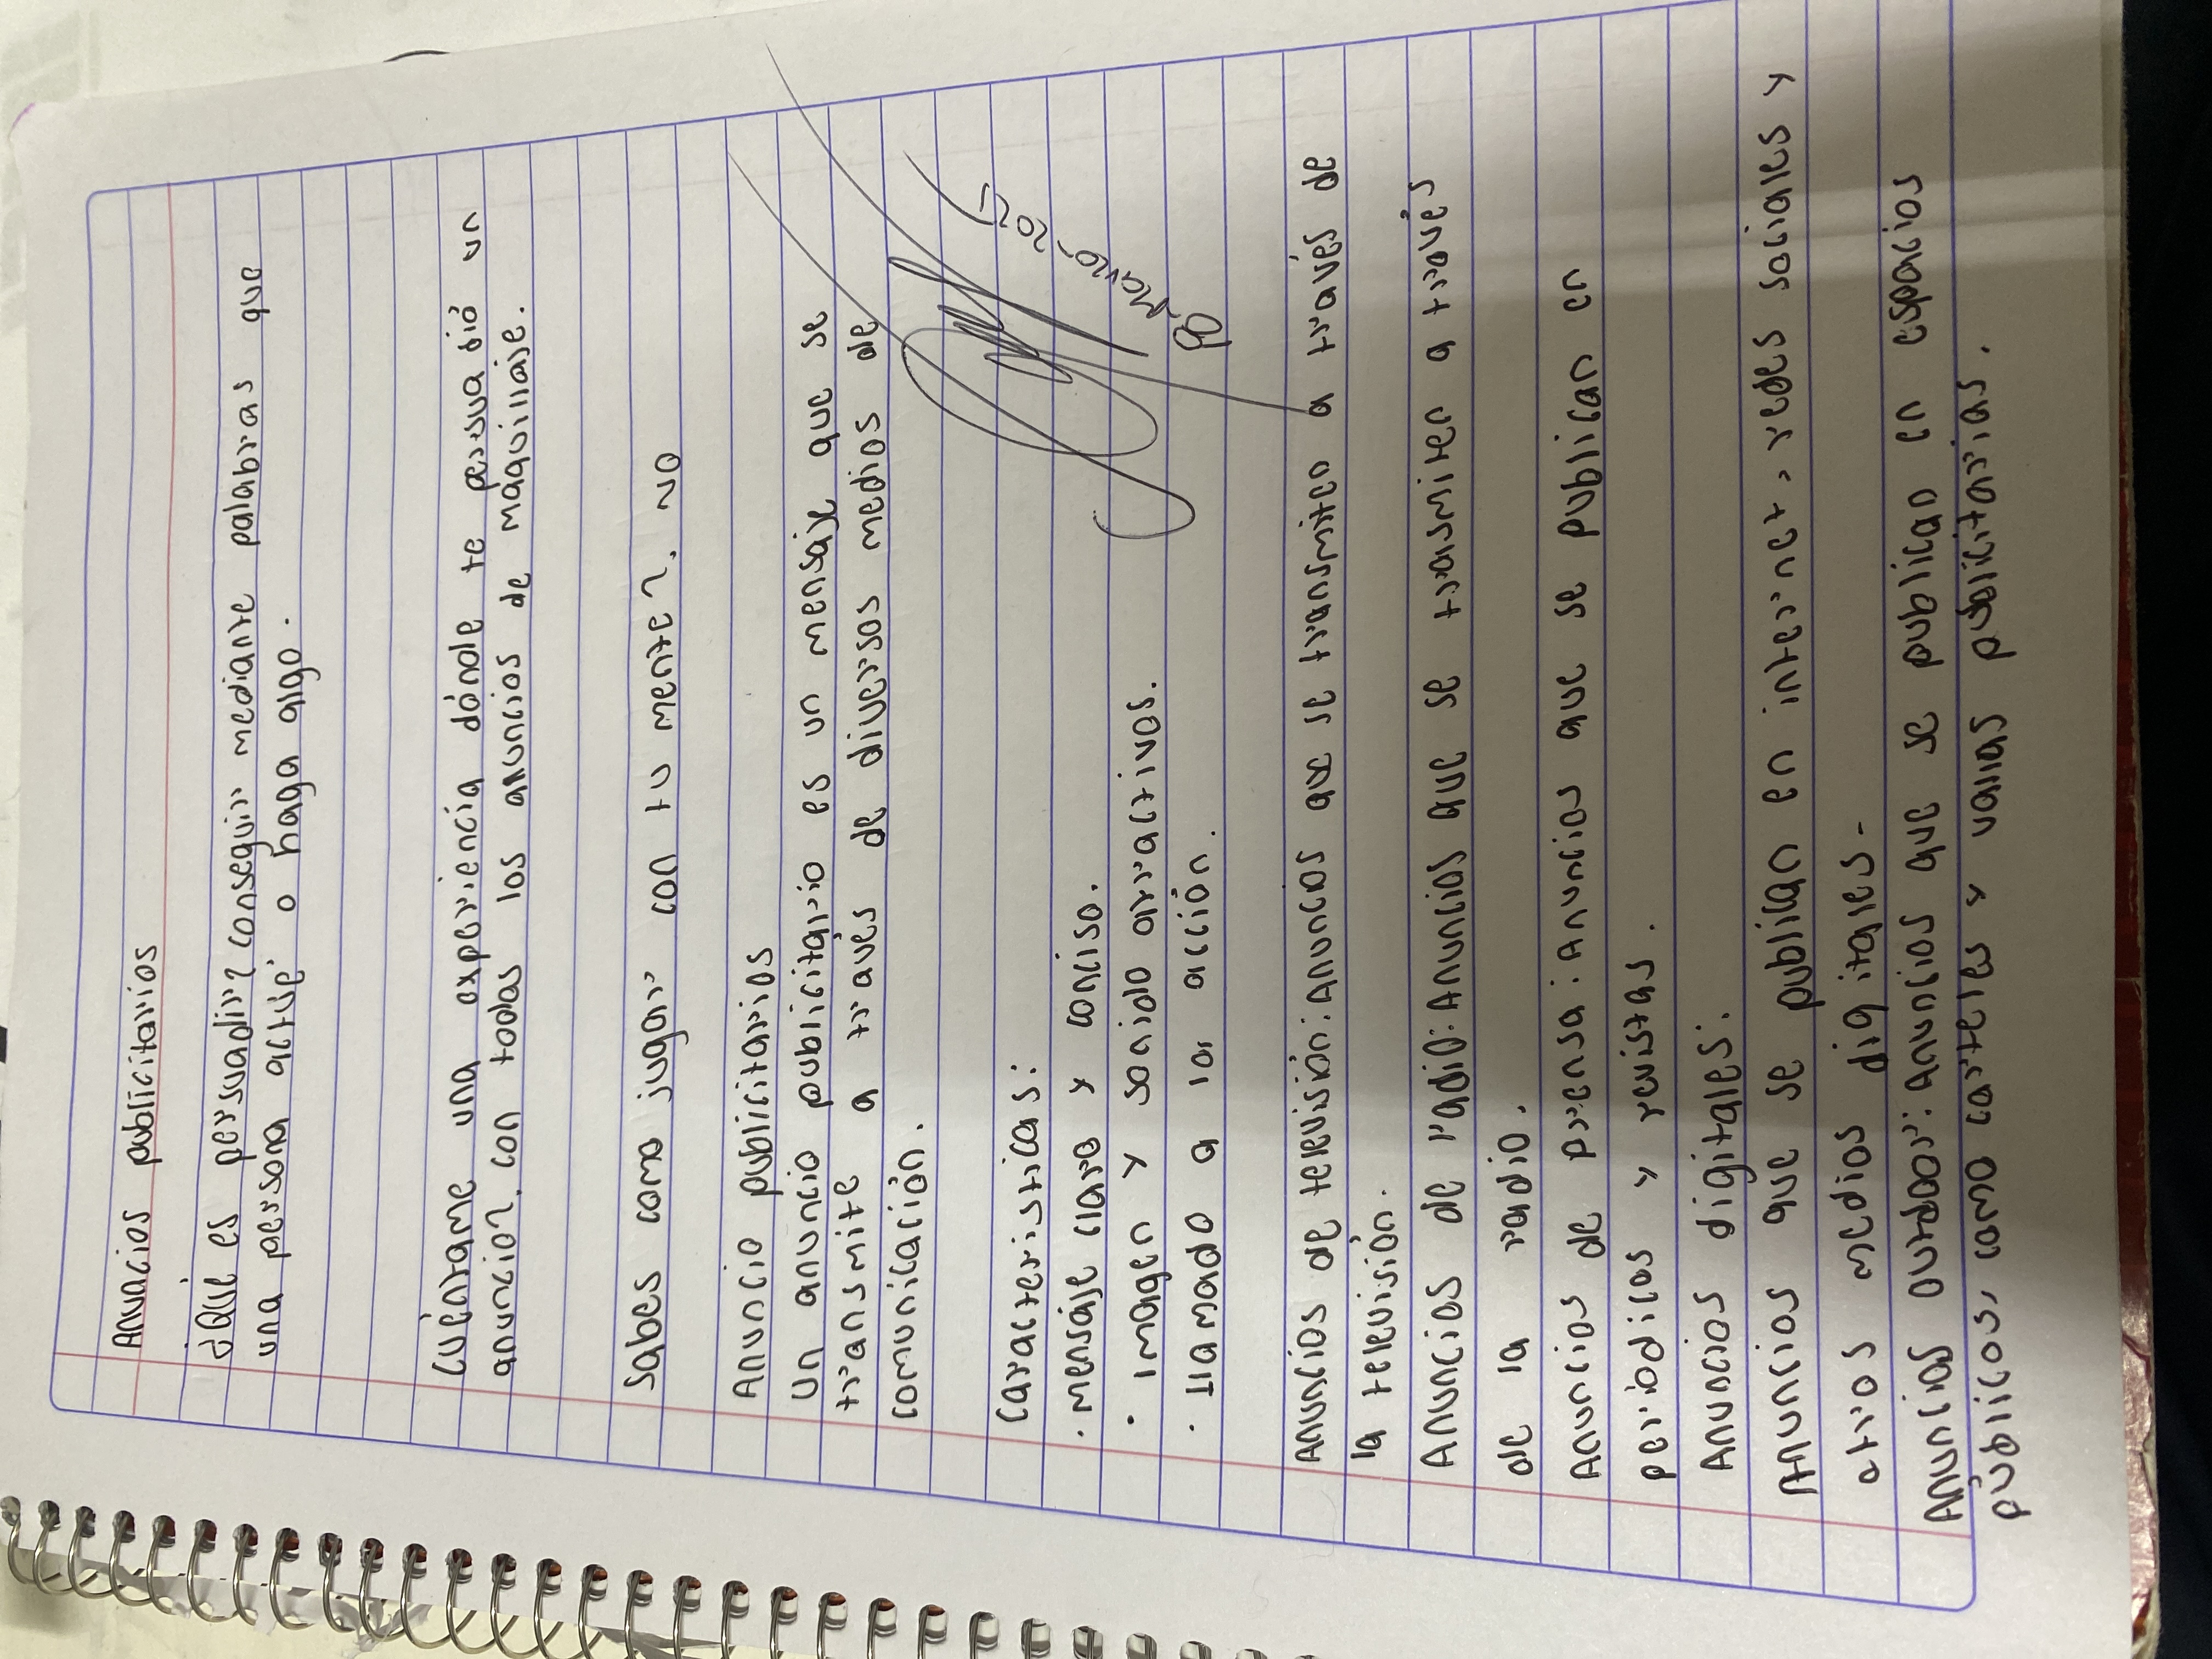 Anuncios publicitarios
¿Qué es persuadir? conseguir mediante palabras que
una persona actué o haga algo.
Cuéntame una experiencia dónde te persuadió un
anuncio?, con todos los anuncios de maquillaje.
Sabes como jugar con tu mente?, NO
Anuncio publicitarios
Un anuncio publicitario es un mensaje que se
transmite a través de diversos medios de
comunicación.
Características:
· mensaje claro y conciso.
· imagen y sonido atractivos.
· llamado a la acción.
Anuncios de televisión: Anuncios que se transmiten a través de
la televisión.
Anuncios de radio: Anuncios que se trasmiten a través
de la radio.
Anuncios de prensa: Anuncios que se publican en
periódicos y revistas.
Anuncios digitales:
Anuncios que se publican en internet, redes sociales y
otros medios digitales-
Anuncios outdoor: Anuncios que se publican en espacios
públicos, como carteles y vallas publicitarias.